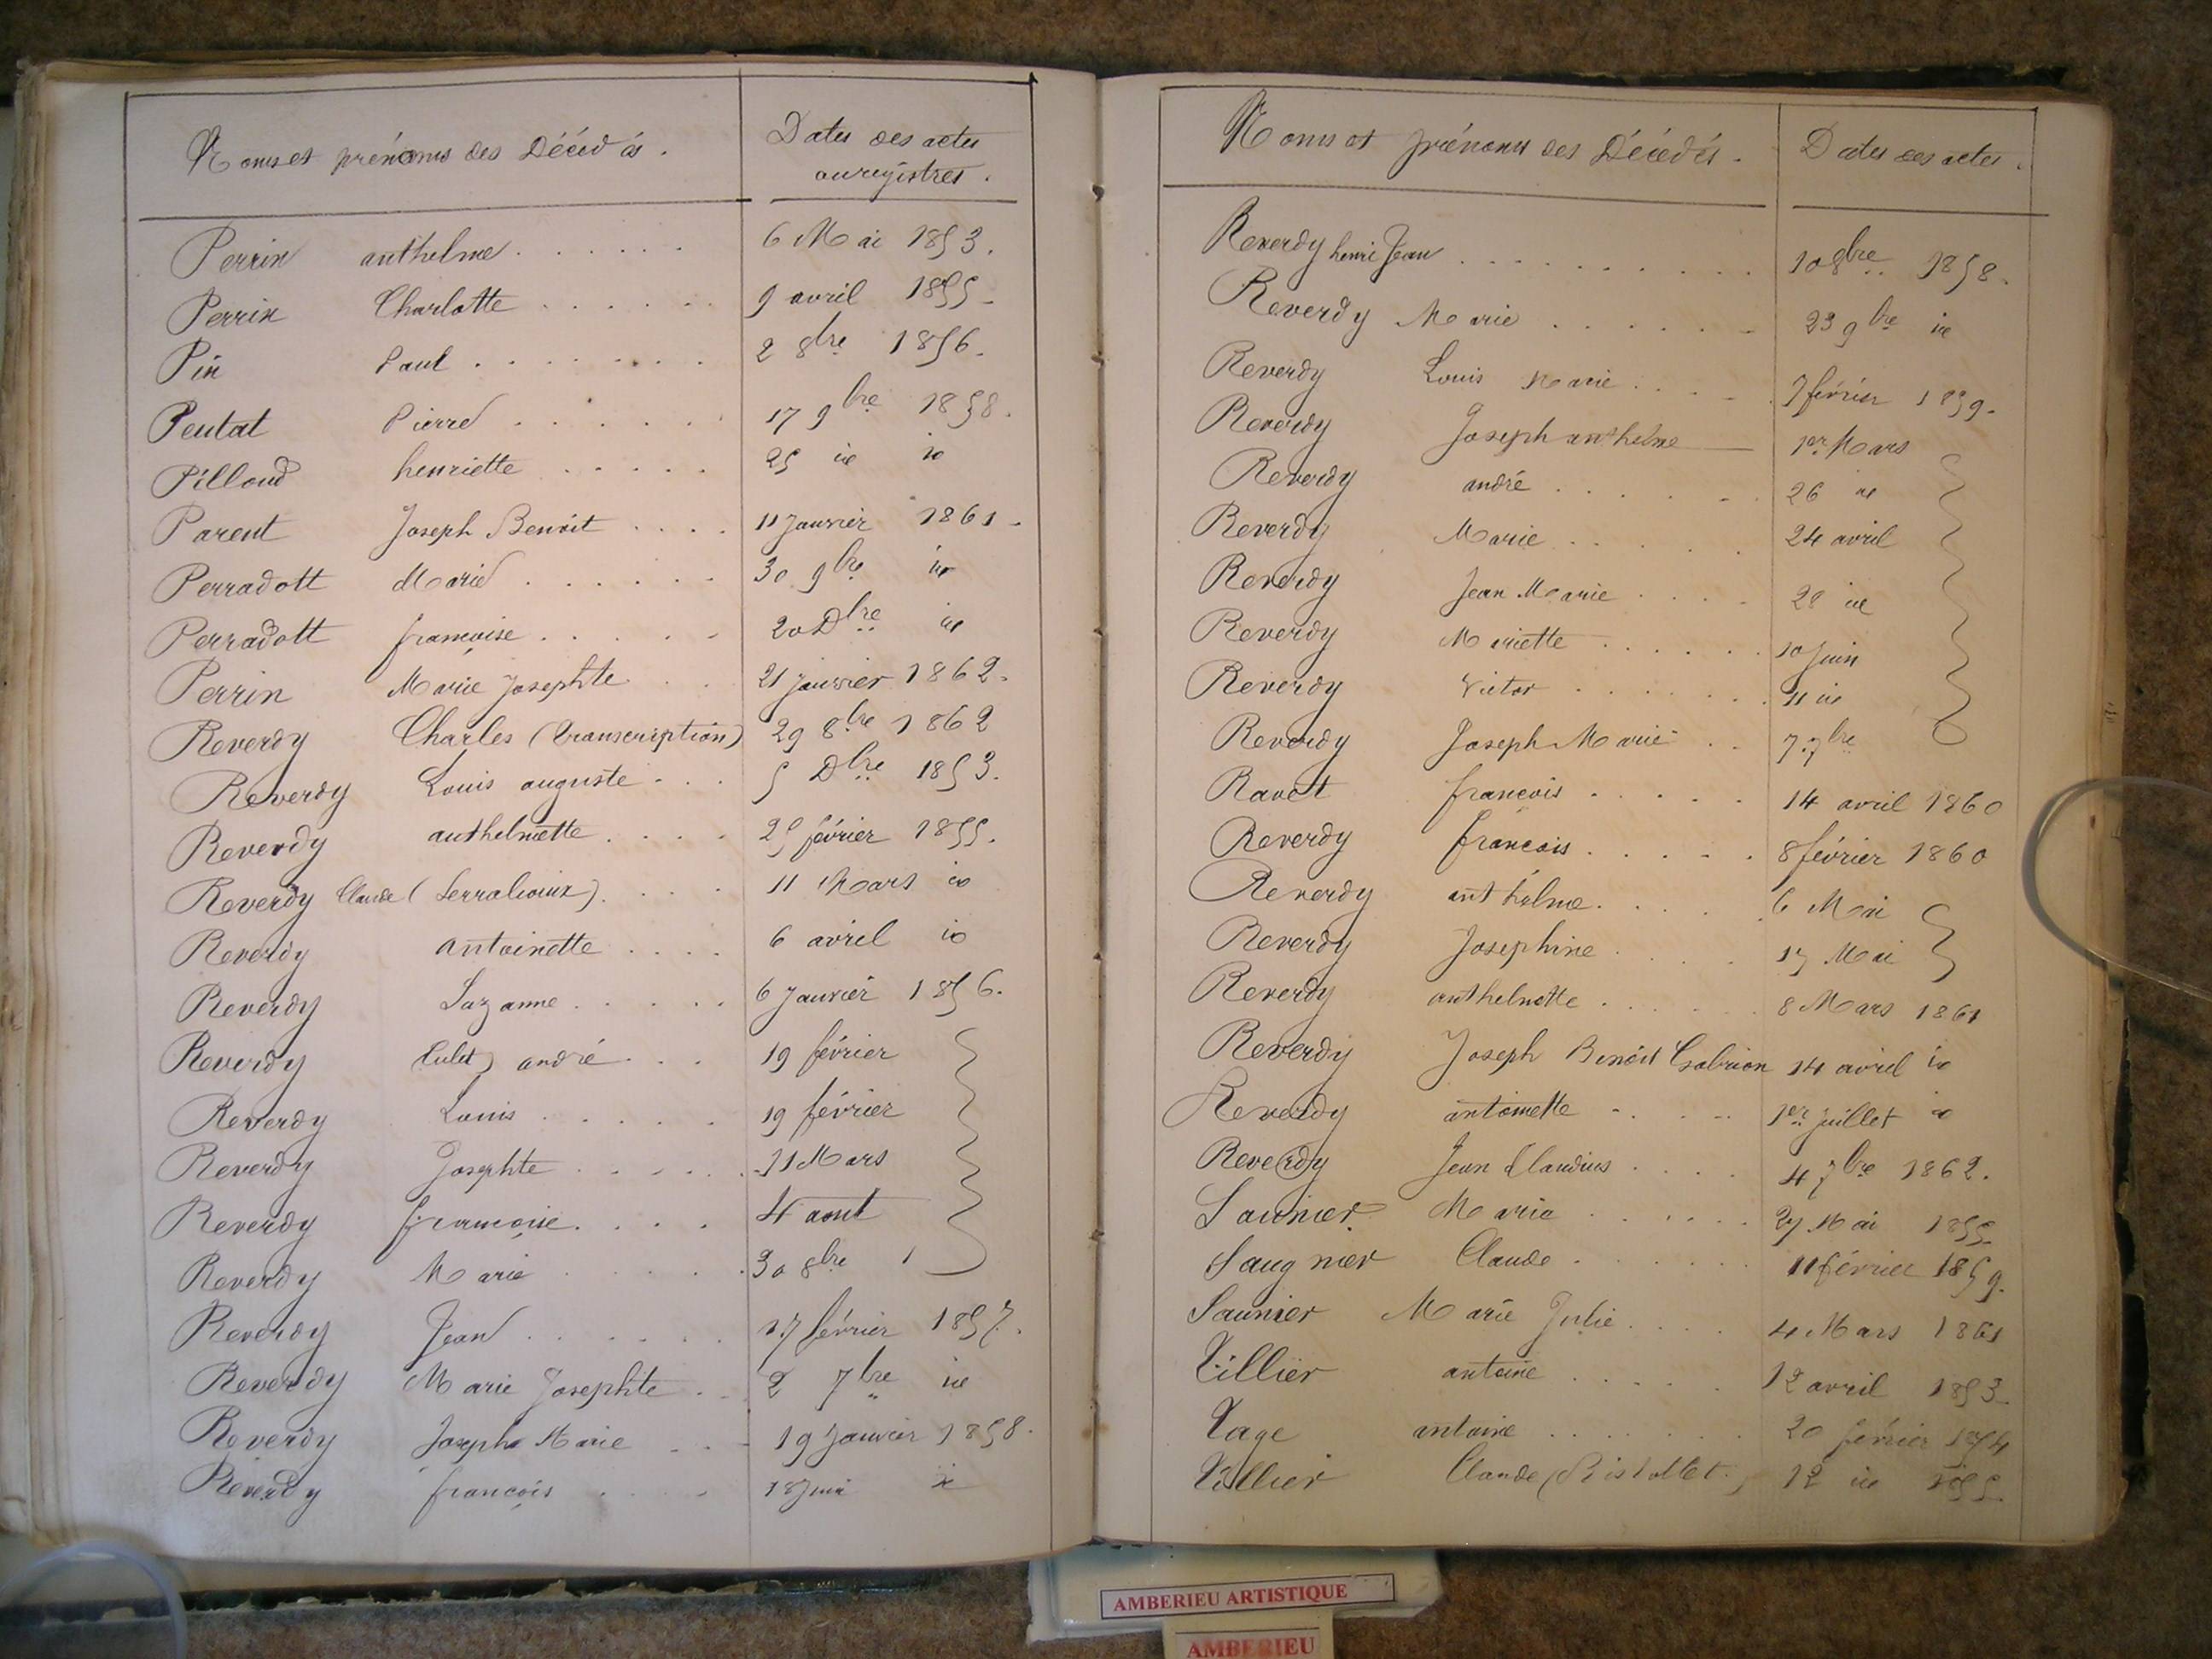 Noms et prénoms des Décédés.
Dates des actes
enregistrés.
Perrin anthelme . . . . . . 6 Mai 1853.
Perrin Charlotte . . . . . . 9 avril 1855.
Pin Paul . . . . . . . 2 8bre 1856.
Peutat Pierre . . . . . . 17 9bre 1858.
Pilloud henriette . . . . . 25 id id
Parent Joseph Benoit . . . . 11 Janvier 1861.
Perradott Marie . . . . . . 30 9bre id
Perradott françoise . . . . . 20 Dbre id
Perrin Marie Josephte . . . 21 janvier 1862.
Reverdy Charles (transcription) 29 8bre 1862
Reverdy Louis auguste . . . 5 Dbre 1853.
Reverdy anthelmette . . . . 25 février 1855.
Reverdy Claude ( . . . . 11 Mars id
Reverdy antoinette . . . . 6 avril id
Reverdy Suzanne . . . . . 6 Janvier 1856.
Reverdy andré . . . 19 février
Reverdy Louis . . . . . 19 février
Reverdy Josephte . . . . . 11 Mars
Reverdy françoise . . . . 4 aout
Reverdy Marie . . . . . 30 8bre
Reverdy Jean . . . . . . 17 février 1857.
Reverdy Marie Josephte . . 2 7bre id
Reverdy Joseph Marie . . . 19 Janvier 1858.
Reverdy françois . . . . 18 juin id
Noms et prénoms des Décédés.
Dates des actes.
Reverdy henri Jean . . . . . . . . . . 10 8bre 1858.
Reverdy Marie . . . . . . 23 9bre id
Reverdy Louis Marie . . . . 7 février 1859.
Reverdy Joseph anthelme 1er Mars
Reverdy andré . . . . . . 26 id
Reverdy Marie . . . . . 24 avril
Reverdy Jean Marie . . . . 28 id
Reverdy Mariette . . . . . . 10 Juin
Reverdy Victor . . . . . . 11 id
Reverdy Joseph Marie . . 7 7bre
Ravet françois . . . . . 14 avril 1860
Reverdy françois . . . . . 8 février 1860
Reverdy anthelme . . . . . 6 Mai
Reverdy Josephine . . . . 17 Mai
Reverdy anthelmette . . . . . . 8 Mars 1861
Reverdy Joseph Benoit 14 avril id
Reverdy antoinette . . . . 1er juillet id
Reverdy Jean Claudius . . . . 4 7bre 1862.
Saunier Marie . . . . . . 27 Mai 1855
Saugnier Claude . . . . . . 11 février 1859.
Saunier Marie Julie . . . . 4 Mars 1861
Tillier antoine . . . . . 12 avril 1853
antoine . . . . . . . 20 février
Tillier Claude ( 12 id 1855.
AMBERIEU ARTISTIQUE
AMBERIEU